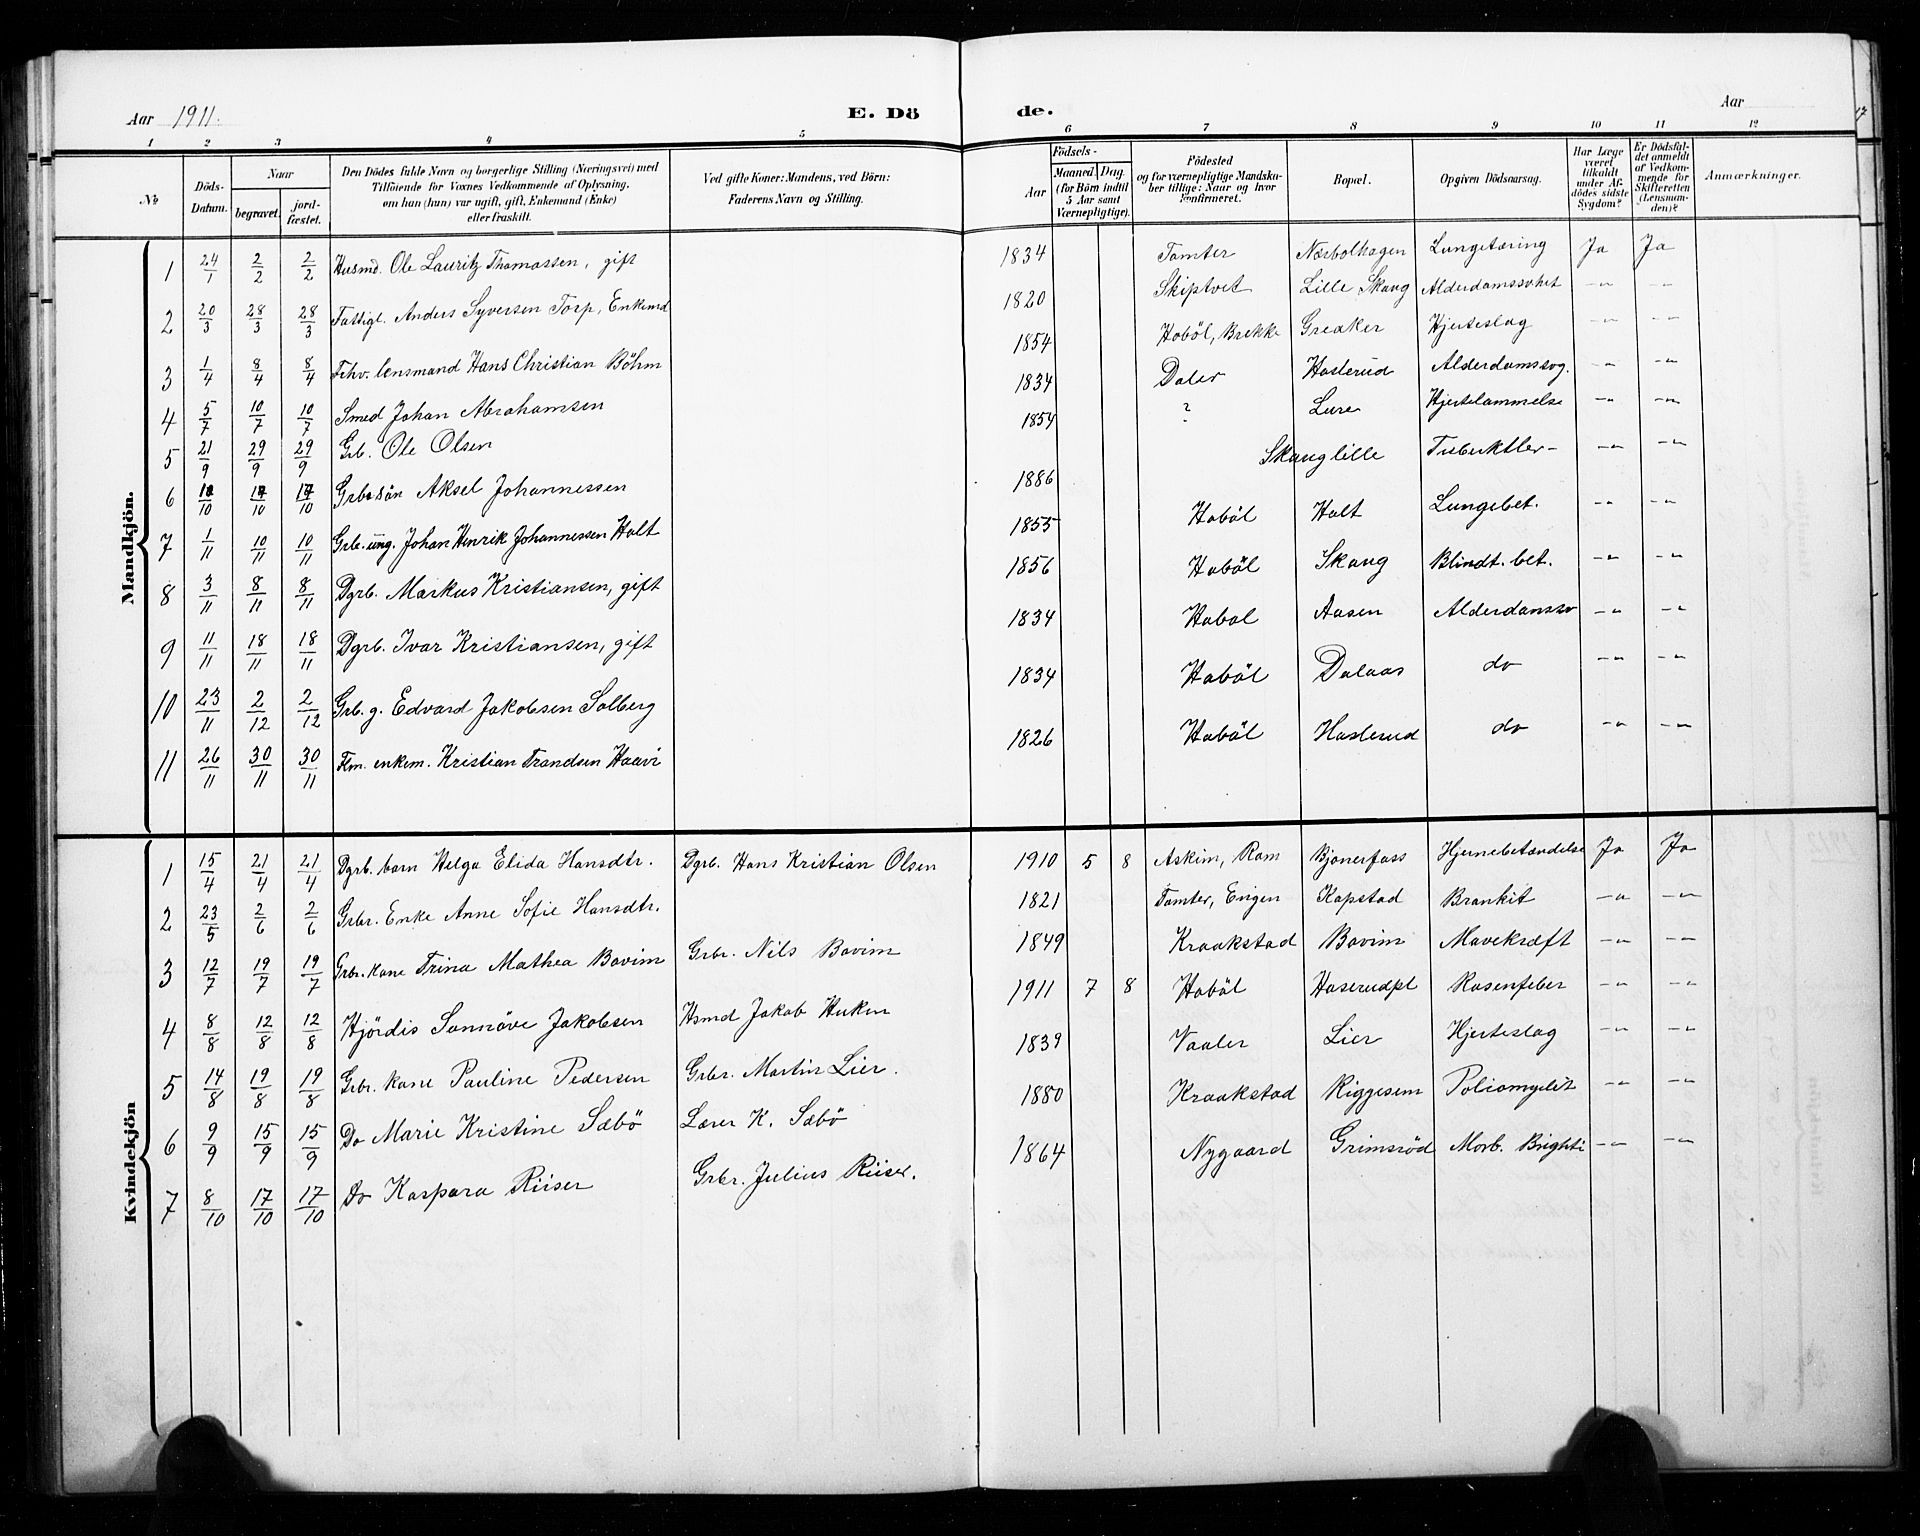 Aar 1911. E. Dö de. Aar
1 2 3 4 5 6 7 8 9 10 11 12
№ Döds-Datum. Naar begravet. jord-fæstet. Den Dödes fulde Navn og borgerlige Stilling (Næringsvei) med Tilföiende for Voxnes Vedkommende af Oplysning, om han (hun) var ugift, gift, Enkemand (Enke) eller fraskilt. Ved gifte Koner: Mandens, ved Börn: Faderens Navn og Stilling. Födsels- Aar Maaned Dag. (for Börn indtil 5 Aar samt Værnepligtige). Födested og for værnepligtige Mandskaber tillige: Naar og hvor confirmeret. Bopæl. Opgiven Dödsaarsag. Har Læge været tilkaldt under Afdödes sidste Sygdom? Er Dödsfaldet anmeldt af Vedkommende for Skifteretten (Lensmanden)? Anmærkninger.
Mandkjön.
1 24/1 2/2 2/2 Husmd. Ole Lauritz Thomassen, gift 1834 Tomter Næsbolhagen Lungetæring Ja Ja
2 20/3 28/3 28/3 Fattigl. Anders Syversen Torp, Enkemd 1820 Skiptvet Lille Skaug Alderdomssvhet -"- -"-
3 1/4 8/4 8/4 Fhv. lensmand Hans Christian Böhm 1854 Hoböl, Brekke Greaker Hjerteslag -"- -"-
4 5/7 10/7 10/7 Smed Johan Abrahamsen 1834 Haslerud Alderdomssvg. -"- -"-
5 21/9 29/9 29/9 Grb. Ole Olsen 1854 ? Lure Hjertelammelse -"- -"-
6 10/10 17/10 17/10 Grb.sön Aksel Johannessen 1886 Skauglille -"- -"-
7 1/11 10/11 10/11 Grb. ung. Johan Henrik Johannessen Holt 1855 Hoböl Holt Lungebet. -"- -"-
8 3/11 8/11 8/11 Dgrb. Markus Kristiansen, gift 1856 Hoböl Skaug Blindt. bet. -"- -"-
9 11/11 18/11 18/11 Dgrb. Ivar Kristiansen, gift 1834 Hobol Aasen Alderdomssv -"- -"-
10 23/11 2/12 2/12 Grb. g. Edvard Jakobsen Solberg 1834 Hoböl Dalaas do -"- -"-
11 26/11 30/11 30/11 Fm. enkem. Kristian Trondsen Haavi 1826 Hoböl Haslerud do -"- -"-
Kvindekjön
1 15/4 21/4 21/4 Dgrb. barn Helga Elida Hansdtr. Dgrb. Hans Kristian Olsen 1910 5 8 Askim, Rom Bjonerfoss Hjernebetændelse Ja Ja
2 23/5 2/6 2/6 Grbr. Enke Anne Sofie Hansdtr. 1821 Tomter, Engen Kopstad Bronkit -"- -"-
3 12/7 19/7 19/7 Grbr. kone Trina Mathea Bovim Grbr. Nils Bovim 1849 Kraakstad Bovim Mavekræft -"- -"-
4 8/8 12/8 12/8 Hjördis Sannöve Jakobsen Hsmd Jakob Huken 1911 7 8 Hoböl Haserudpl Rosenfeber -"- -"-
5 14/8 19/8 19/8 Grbr. kone Pauline Pedersen Grbr. Martin Lier. 1839 Vaaler Lier Hjerteslag -"- -"-
6 9/9 15/9 15/9 Do Marie Kristine Sæbö Lærer K. Sæbö 1880 Kraakstad Riggesem Poliomyelit -"- -"-
7 8/10 17/10 17/10 Do Kaspara Riiser Grbr. Julius Riiser. 1864 Nygaard Grimsröd Morb. Brighti -"- -"-